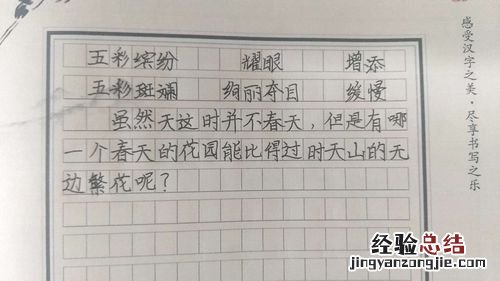 五彩缤纷 耀眼 增添
五彩斑斓 绚丽夺目 缓慢
虽然天这时并不春天，但是有哪
一个春天的花园能比得过时天山的无
边繁花呢？
感受汉字之美·尽享书写之乐
经验总结
jingyanzongjie.com